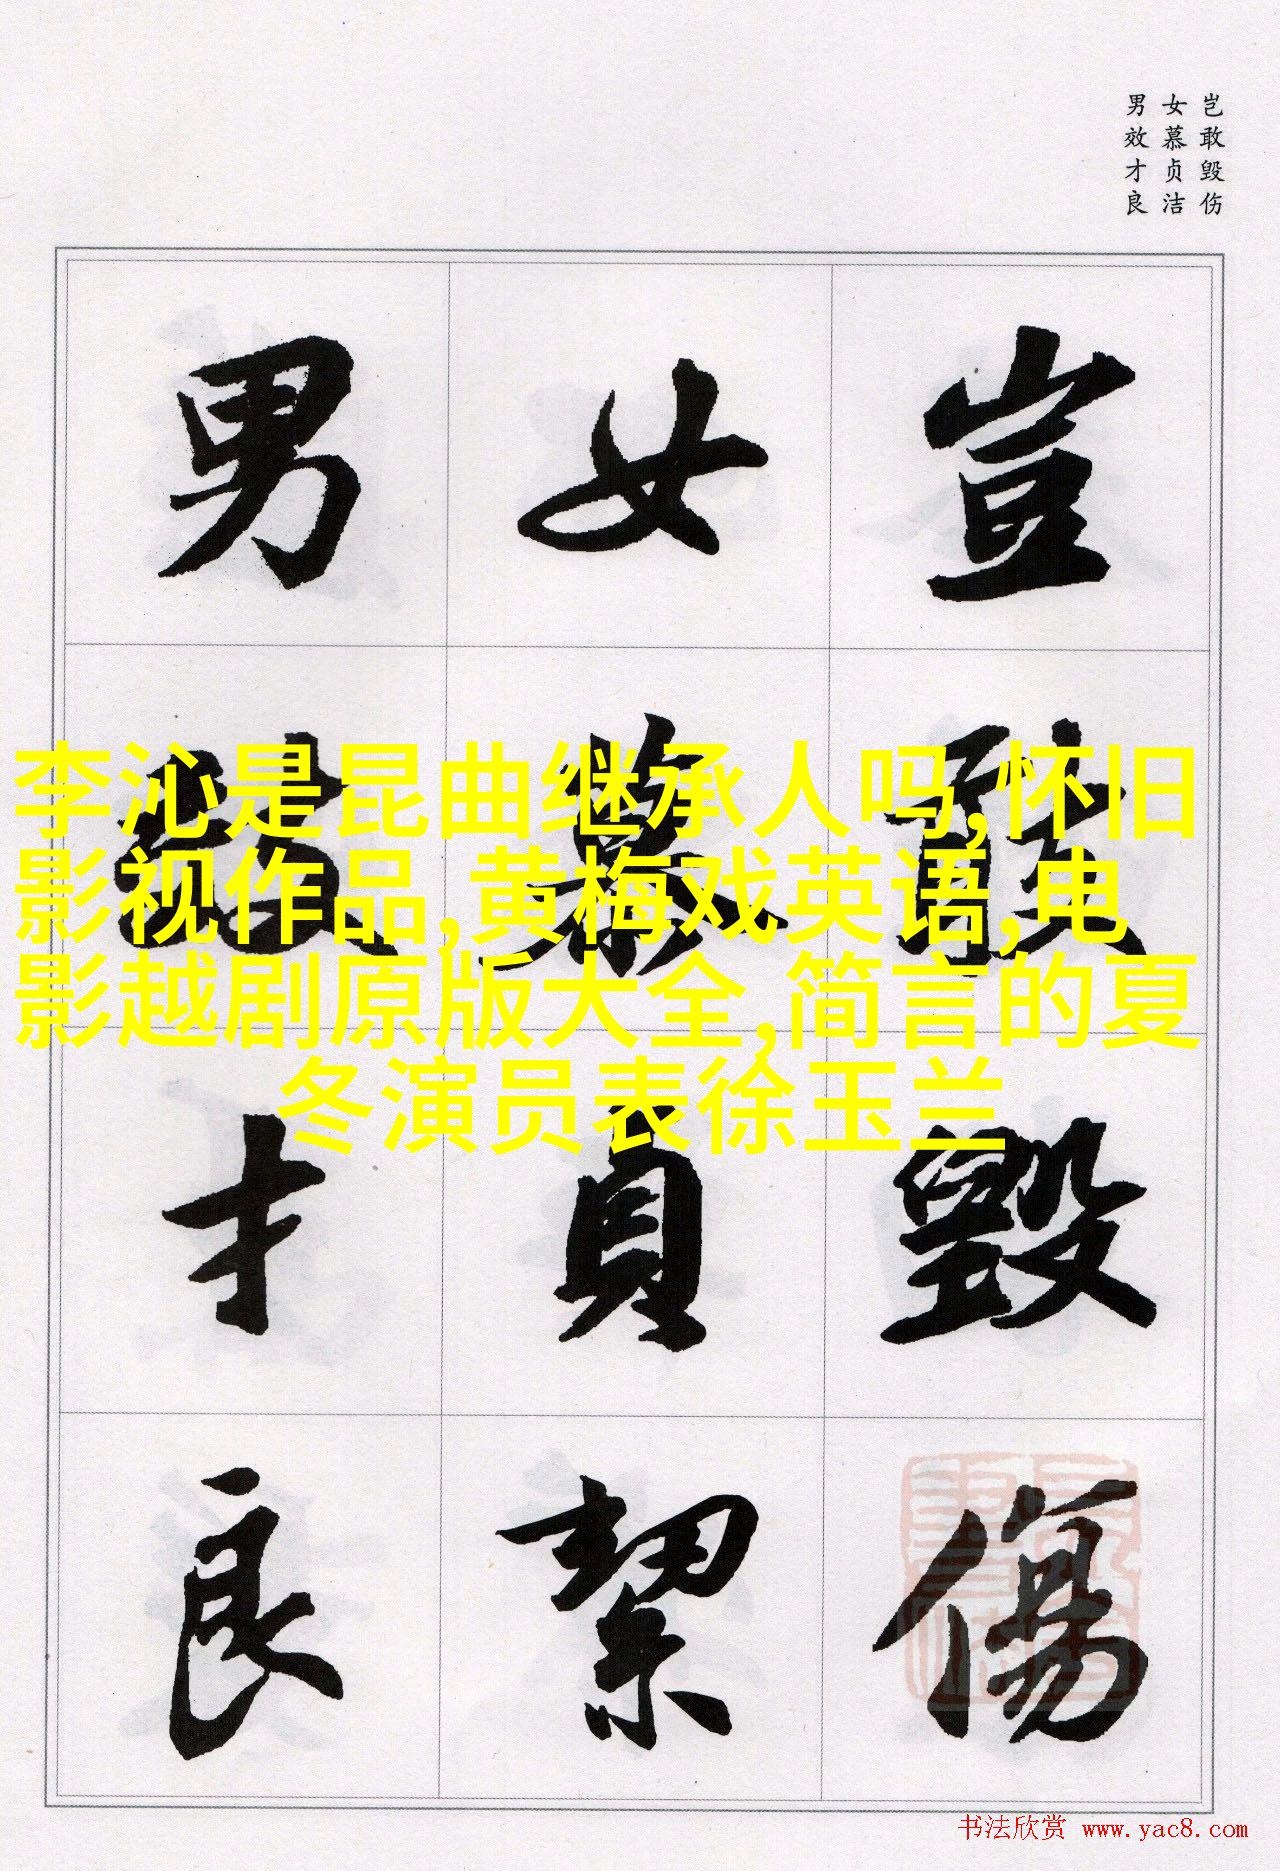 岂敢毁伤
女慕贞洁
男效才良
豈敢毀傷
女慕貞絜
男效才良
李沁是昆曲继承人吗,怀旧
影视作品,黄梅戏英语,电
影越剧原版大全,简言的夏
冬演员表徐玉兰
书法欣赏 www.yac8.com